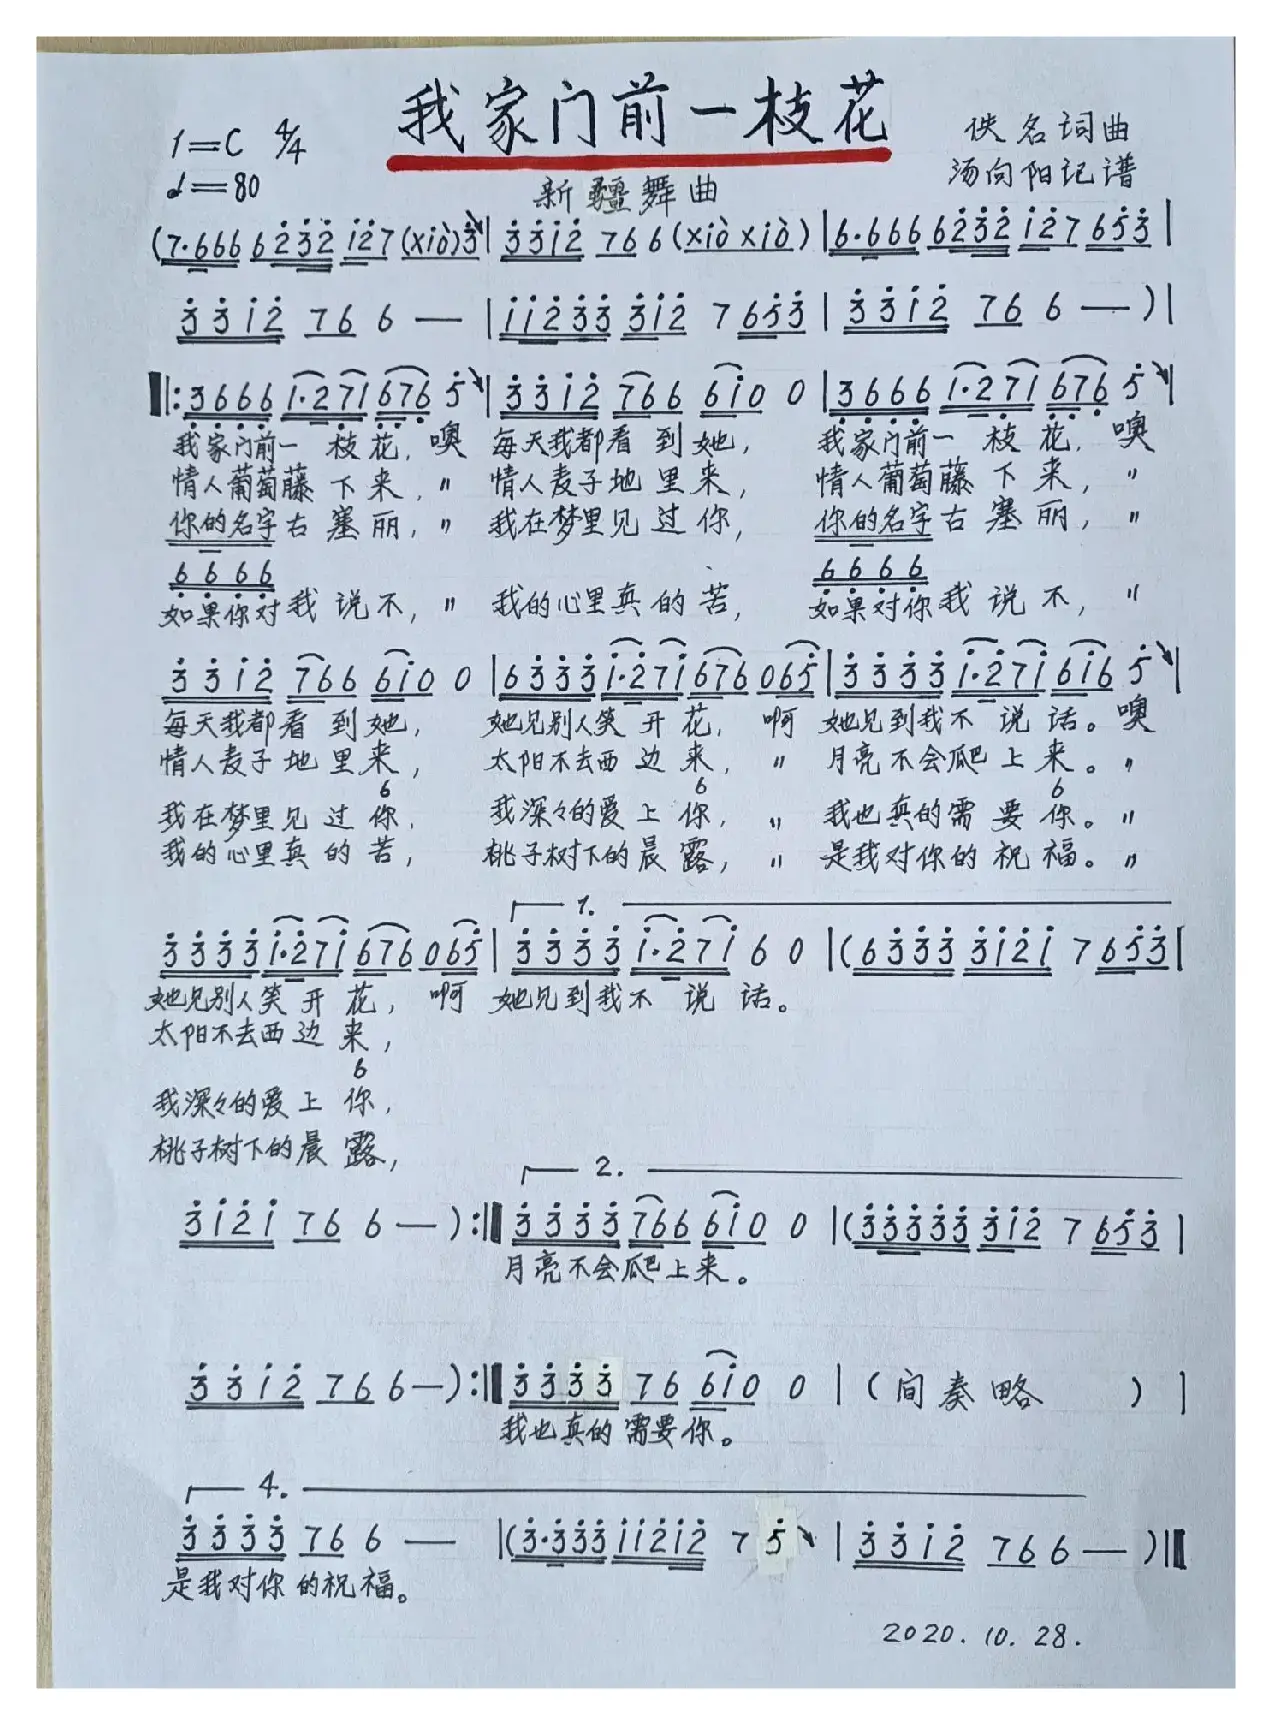 我家门前一枝花
1=C 4/4
佚名词曲
♩=80
新疆舞曲
汤向阳记谱
(7·666 6232 127(xiò)3 | 3312 766(xiòxiò) | 6·666 6232 127 653 |
3312 76 6 — | 11233 312 7 653 | 3312 76 6 — ) |
‖: 3666 1·271 676 5 | 3312 766 610 0 | 3666 1·271 676 5 |
我家门前一枝花,噢 每天我都看到她, 我家门前一枝花,噢
情人葡萄藤下来,〃 情人麦子地里来, 情人葡萄藤下来,〃
你的名字古塞丽,〃 我在梦里见过你, 你的名字古塞丽,〃
6 6 6 6 6 6 6 6
如果你对我说不,〃 我的心里真的苦, 如果对你我说不,〃
3312 766 610 0 | 6333 1·271 676 065 | 3333 1·271 616 5 |
每天我都看到她, 她见别人笑开花, 啊 她见到我不说话。噢
情人麦子地里来, 太阳不去西边来,〃 月亮不会爬上来。〃
6 6 6
我在梦里见过你, 我深々的爱上你,〃 我也真的需要你。〃
我的心里真的苦, 桃子树下的晨露,〃 是我对你的祝福。〃
1.
3333 1·271 676 065 | 3333 1·271 6 0 | (6333 3121 7 653 |
她见别人笑开花, 啊 她见到我不说话。
太阳不去西边来,
6
我深々的爱上你,
桃子树下的晨露,
2.
3121 76 6 — ) :‖ 3333 766 610 0 | (33333 312 7 653 |
月亮不会爬上来。
3312 76 6 — ) :‖ 3333 76 610 0 | (间奏略 ) |
我也真的需要你。
4.
3333 76 6 — | (3·333 11212 7 5 | 3312 76 6 — ) ‖
是我对你的祝福。
2020.10.28.